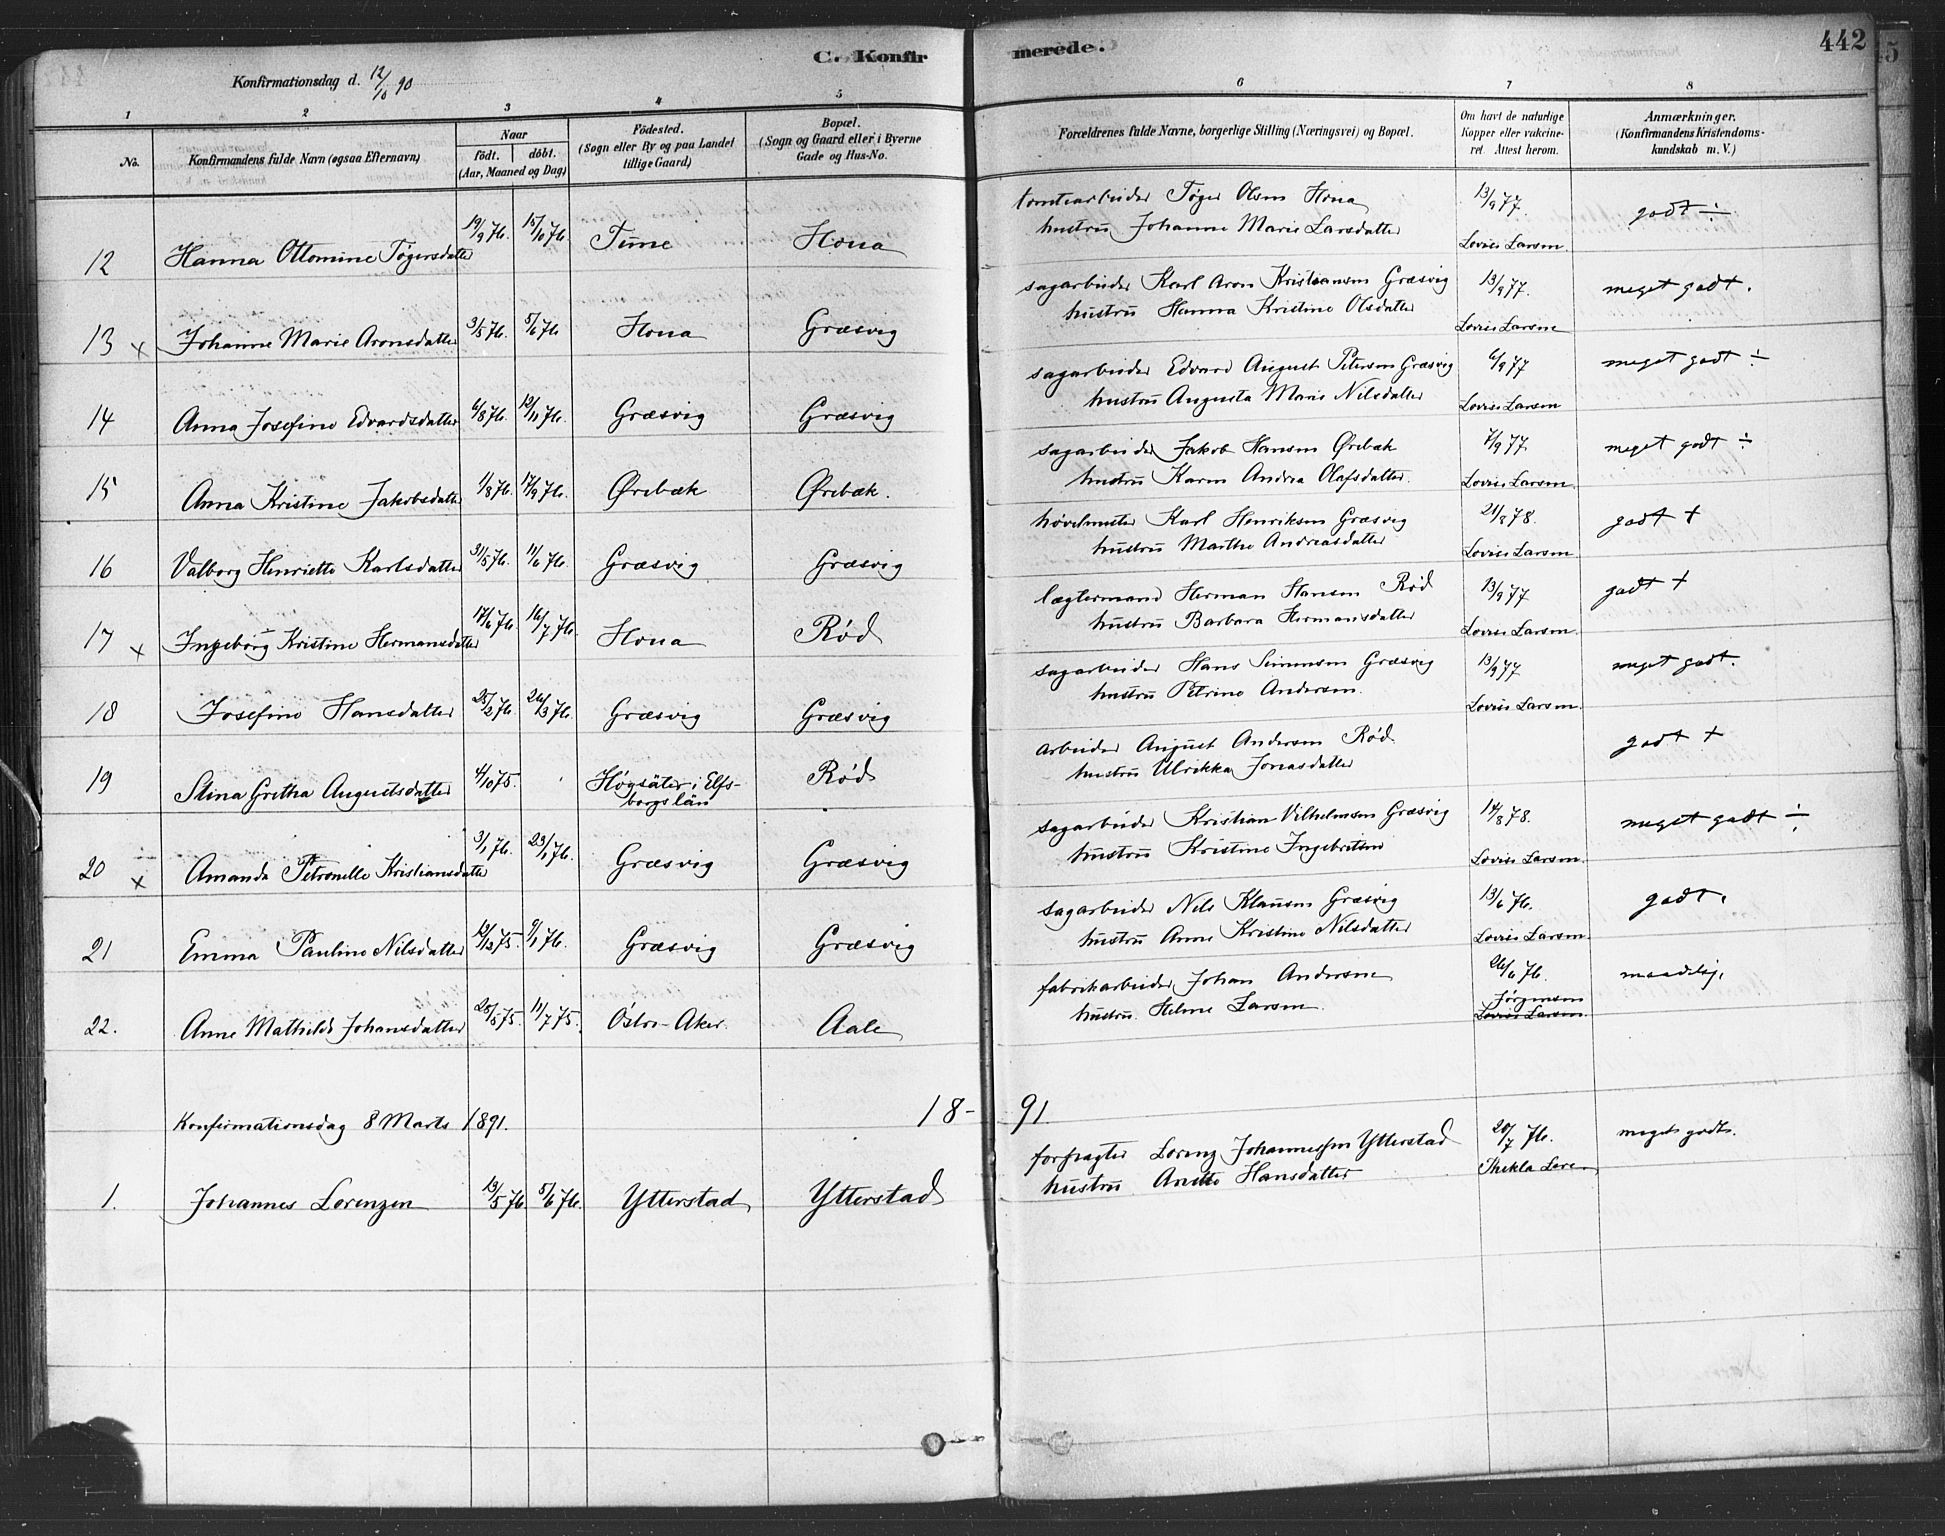 C. Konfirmerede.
442
Konfirmationsdag d. 12/10 90
1 2 3 4 5 6 7 8
No.
Konfirmandens fulde Navn (ogsaa Efternavn)
Naar
födt. döbt.
(Aar, Maaned og Dag)
Födested.
(Sogn eller By og paa Landet
tillige Gaard)
Bopæl.
(Sogn og Gaard eller i Byerne
Gade og Hus-No.
Forældrenes fulde Navne, borgerlige Stilling (Næringsvei) og Bopæl.
Om havt de naturlige
Kopper eller vakcine-
ret. Attest herom.
Anmærkninger.
(Konfirmandens Kristendoms-
kundskab m. V.)
12 Hanna Ottomine Tøgersdatter 19/9 76. 15/10 76. Tune Hona
tomtearbeider Tøger Olsen Hona 13/9 77. godt ÷
hustru Johanne Marie Larsdatter Lovise Larsen
13 x Johanne Marie Aronsdatter 3/5 76. 5/6 76 Hona Græsvig
sagarbeider Karl Aron Kristiansen Græsvig 13/9 77. meget godt.
hustru Hanna Kristine Olsdatter Lovise Larsen
14 Anna Josefine Edvardsdatter 6/8 76. 12/11 76. Græsvig Græsvig
sagarbeider Edvard August Petersen Græsvig 6/9 77 meget godt ÷
hustru Augusta Marie Nilsdatter Lovise Larsen
15 Anna Kristine Jakobsdatter 1/8 76. 17/9 76. Ørebæk Ørebæk.
sagarbeider Jakob Hansen Ørebæk 7/9 77 meget godt ÷
hustru Karen Andrea Olafsdatter. Lovise Larsen.
16 Valborg Henriette Karlsdatter 31/5 76. 11/6 76. Græsvig Græsvig
høvelmester Karl Henriksen Græsvig 21/8 78. godt +
hustru Marthe Andreasdatter Lovise Larsen
17 x Ingeborg Kristine Hermansdatter 17/6 76. 16/7 76. Hona Rød
lægtermand Herman Hansen Rød 13/9 77 godt +
hustru Barbara Hermansdatter Lovise Larsen.
18 Josefine Hansdatter 25/2 76. 26/3 76. Græsvig Græsvig
sagarbeider Hans Simensen Græsvig 13/9 77 meget godt.
hustru Petrine Andersen. Lovise Larsen.
19 Stina Gretha Augustsdatter 4/10 75. Högsäter i Elfs-
borgs län Rød
arbeider August Andersen Rød. godt +
hustru Ulrikka Jonasdatter
20 x Amanda Petronelle Kristiansdatter 3/1 76. 23/1 76. Græsvig Græsvig
sagarbeider Kristian Vilhelmsen Græsvig 14/8 78. meget godt ÷
hustru Kristine Ingebritsen Lovise Larsen.
21 Emma Pauline Nilsdatter 12/12 75. 9/1 76. Græsvig Græsvig
sagarbeider Nils Klausen Græsvig 13/6 76. godt.
hustru Anne Kristine Nilsdatter Lovise Larsen.
22. Anne Mathilde Johansdatter 20/5 75. 11/7 75. Östre-Aker. Aale
fabrikarbeider Johan Andersen 26/6 76. maadelig.
hustru. Helene Larsen Jørgensen
Lovise Larsen.
Konfirmationsdag 8 Marts 1891.
18-91.
1. Johannes Lorenzen 13/5 76 5/6 76. Ytterstad Ytterstad
forpagter Lorenz Johannessen Ytterstad 20/7 76. meget godt.
hustru Anette Hansdatter Thekla